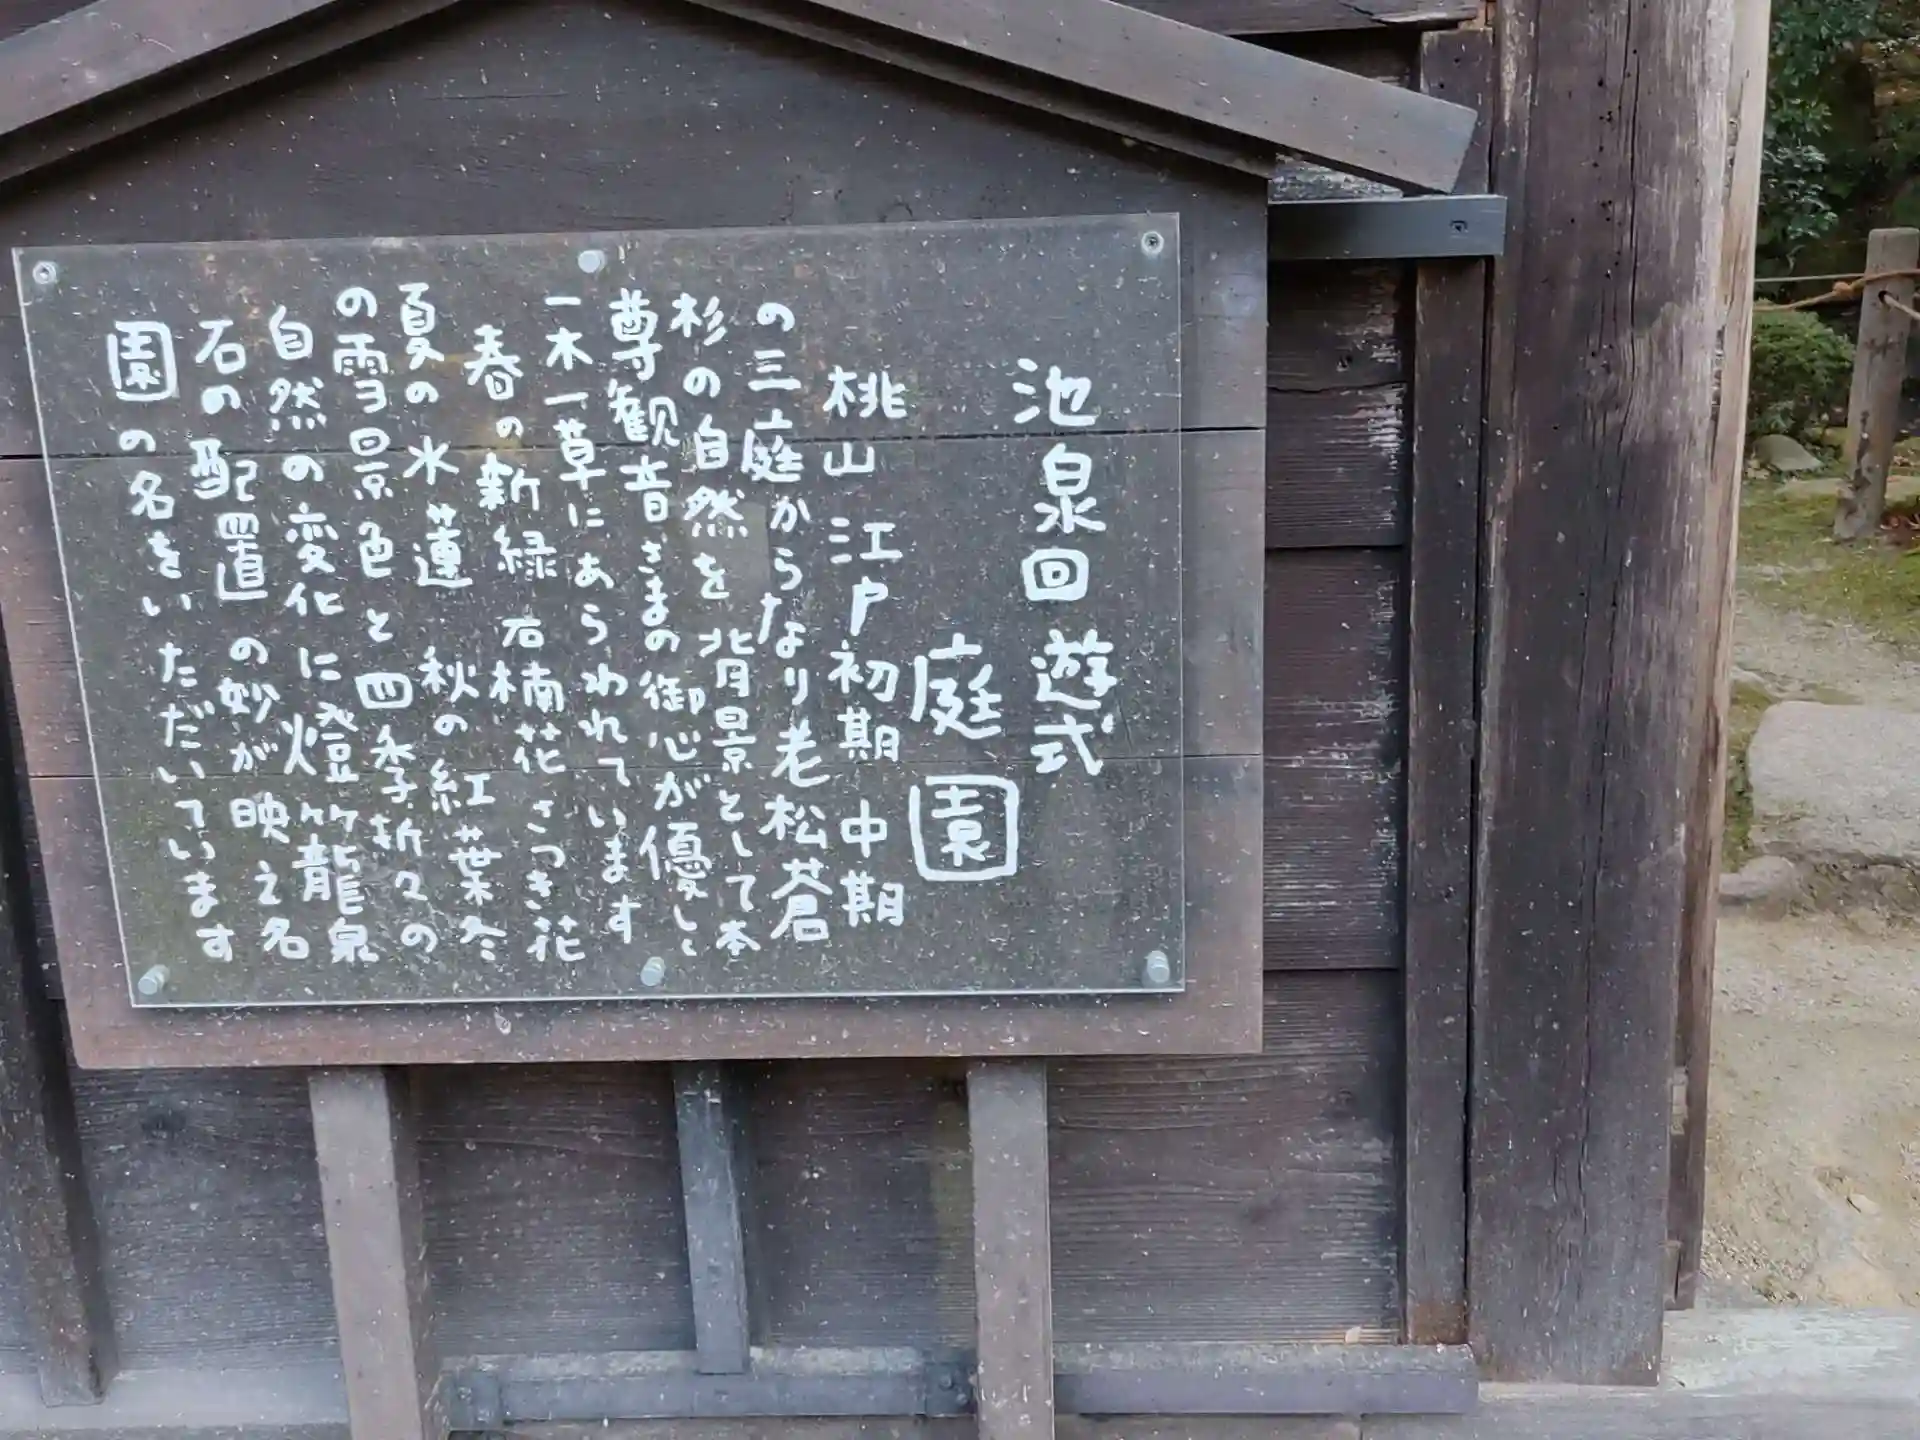 池泉回遊式
庭園
桃山 江戸初期 中期
の三庭からなり老松蒼
杉の自然を背景として本
尊観音さまの御心が優しく
一木一草にあらわれています
春の新緑 石楠花さつき花
夏の水蓮 秋の紅葉冬
の雪景色と四季折々の
自然の変化に燈籠泉
石の配置の妙が映え名
園の名をいただいています